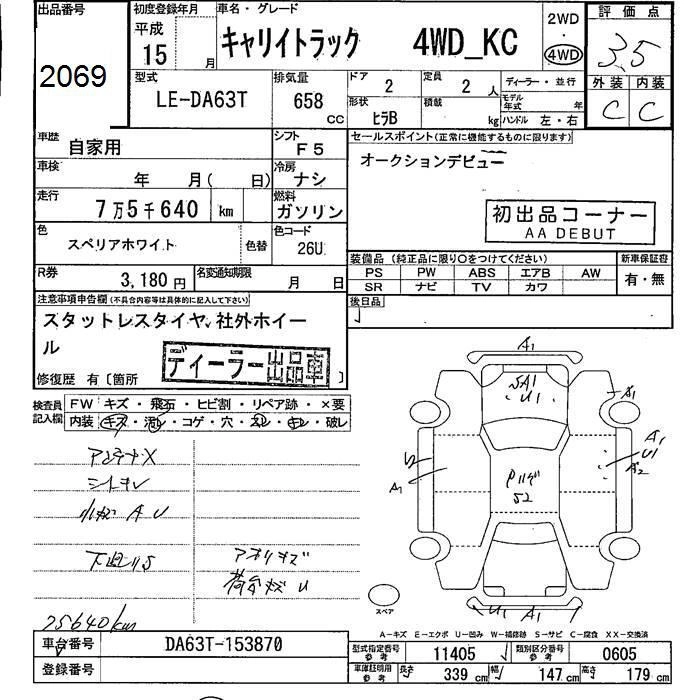 出品番号
2069
初度登録年月
平成
15 月
車名・グレード
キャリイトラック 4WD_KC
2WD
・
4WD
評価点
3.5
外装 内装
C C
型式
LE-DA63T
排気量
658
CC
ドア
2
定員
2 人
ディーラー・並行
形状
ヒラB
積載
kg
モデル年式 年
ハンドル 左・右
車歴
自家用
シフト
F5
車検
年 月( 日)
冷房
ナシ
走行
7万5千640 km
燃料
ガソリン
色
スペリアホワイト
色替
色コード
26U
R券
3,180円
名変通知期限
月 日
セールスポイント(正常に機能するものに限ります)
オークションデビュー
初出品コーナー
AA DEBUT
装備品(純正品に限り○をつけてください)
PS PW ABS エアB AW
SR ナビ TV カワ
新車保証書
有・無
後日品
注意事項申告欄(不具合内容等は具体的に記入して下さい)
スタットレスタイヤ、社外ホイー
ル
ディーラー出品車
修復歴 有〔箇所 〕
検査員
記入欄
FW キズ・飛石・ヒビ割・リペア跡・×要
内装 キズ・汚レ・コゲ・穴・スレ・キレ・破レ
アンテナX
シートキレ
小キズ A U
下廻りS
アオリキズ
荷台キズ U
75640km
A1
A1
U1
A1
A1
U1
A2
A1
S2
U1 A1
スペア
A-キズ E-エクボ U-凹み W-補修跡 S-サビ C-腐食 XX-交換済
車台番号
DA63T-153870
登録番号
型式指定番号
参考
11405
類別区分番号
参考
0605
車庫証明用
参考
長さ 339 cm 幅 147 cm 高さ 179 cm